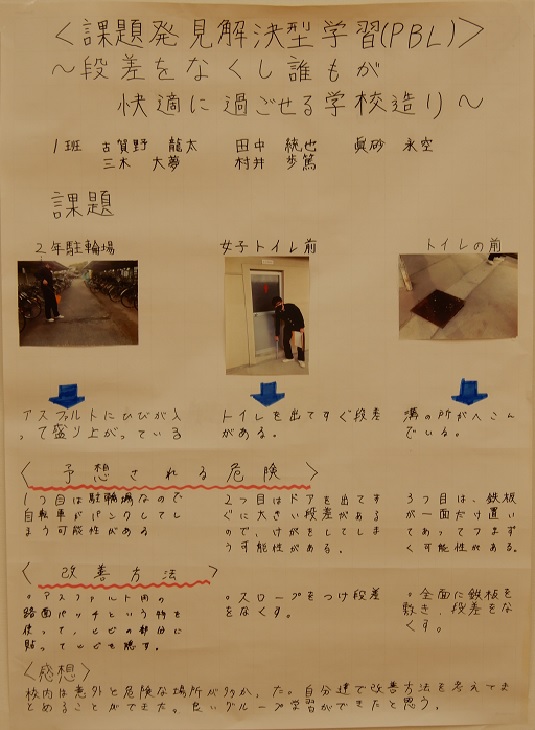 〈課題発見解決型学習(PBL)〉
～段差をなくし誰もが
快適に過ごせる学校造り～
1班 古賀野 龍太 田中 統也 眞砂 永空
三木 大夢 村井 歩篤
課題
2年駐輪場 女子トイレ前 トイレの前
アスファルトにひびが入
って盛り上がっている
トイレを出てすぐ段差
がある。
溝の所がへこん
でいる。
〈予想される危険〉
1つ目は駐輪場なので
自転車がパンクしてし
まう可能性がある
2つ目はドアを出てす
ぐに大きい段差がある
ので、けがをしてしま
う可能性がある。
3つ目は、鉄板
が一面だけ置い
てあってつまず
く可能性がある。
〈改善方法〉
。アスファルト用の
路面パッチという物を
使って、ヒビの部分に
貼ってヒビを隠す。
。スロープをつけ段差
をなくす。
。全面に鉄板を
敷き、段差をな
くす。
〈感想〉
校内は意外と危険な場所が多かった。自分達で改善方法を考えてま
とめることができた。良いグループ学習ができたと思う。